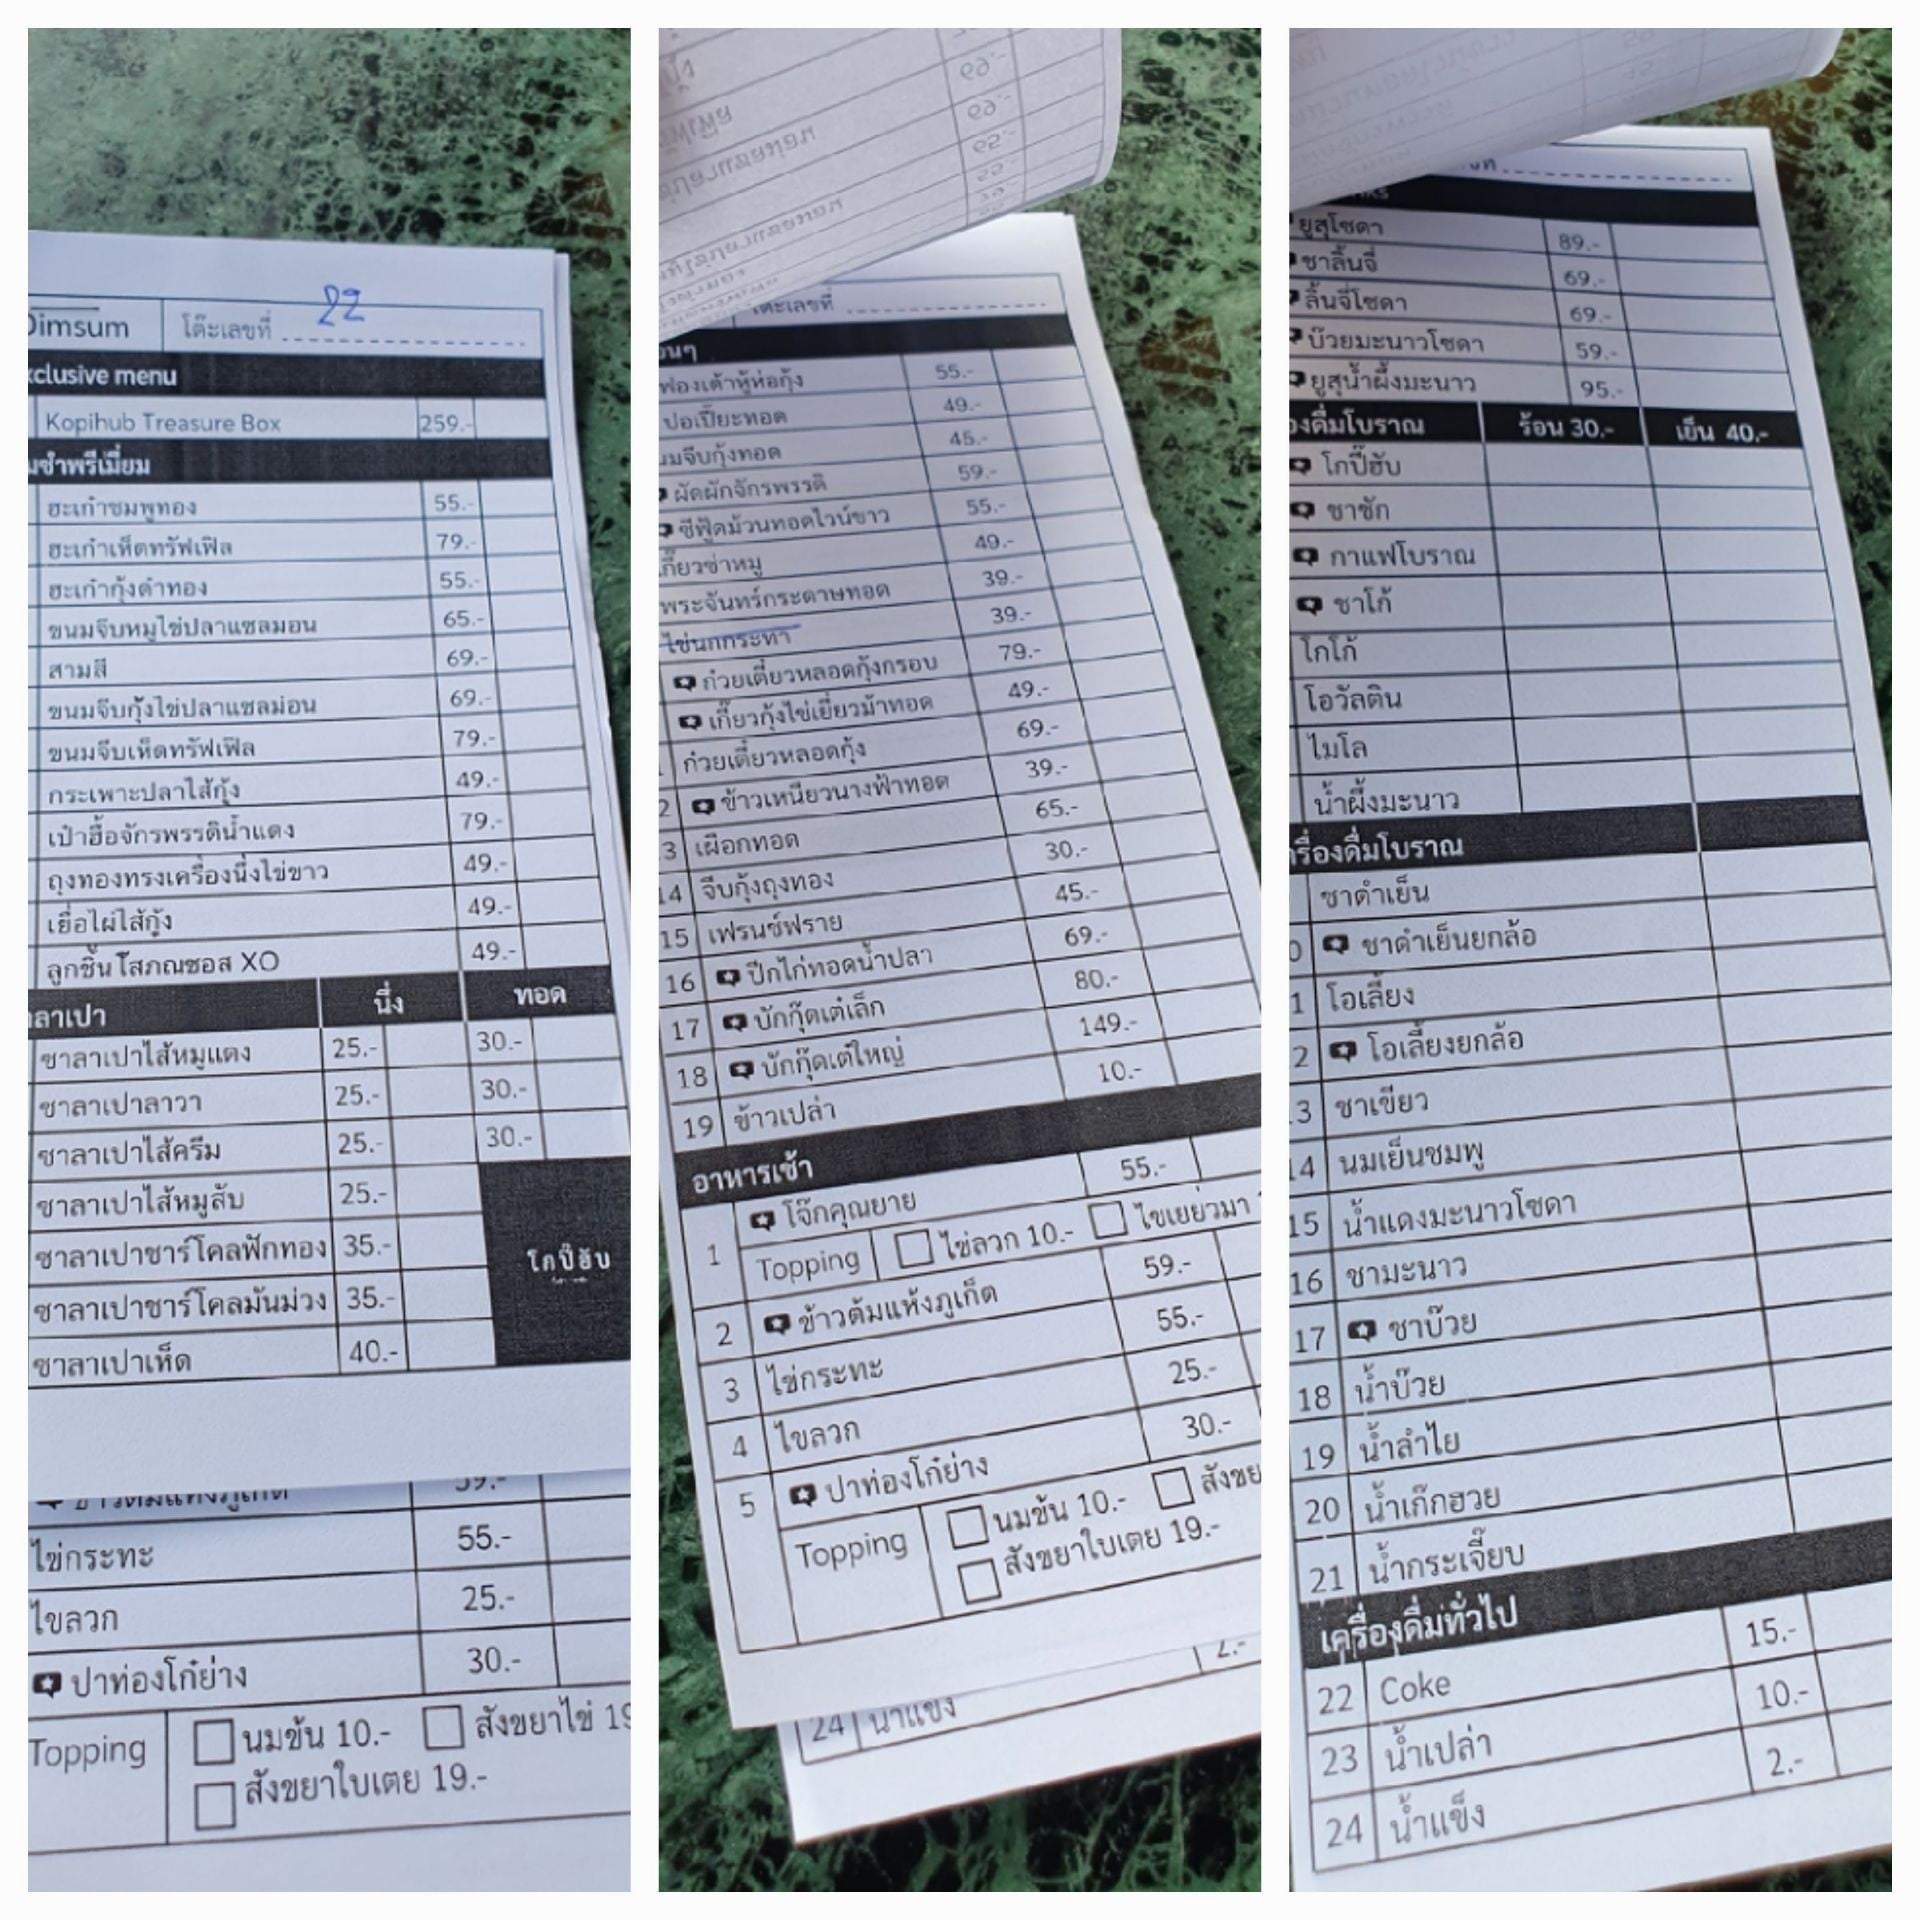 Dimsum โต๊ะเลขที่ 22
Exclusive menu
Kopihub Treasure Box 259.-
พรีเมี่ยม
ฮะเก๋าชมพูทอง 55.-
ฮะเก๋าเห็ดทรัฟเฟิล 79.-
ฮะเก๋ากุ้งดำทอง 55.-
ขนมจีบหมูไข่ปลาแซลมอน 65.-
สามสี 69.-
ขนมจีบกุ้งไข่ปลาแซลม่อน 69.-
ขนมจีบเห็ดทรัฟเฟิล 79.-
กระเพาะปลาไส้กุ้ง 49.-
เป๋าฮื้อจักรพรรดิน้ำแดง 79.-
ถุงทองทรงเครื่องนึ่งไข่ขาว 49.-
เยื่อไผ่ไส้กุ้ง 49.-
ลูกชิ้นโสภณซอส XO 49.-
ลาเปา นึ่ง ทอด
ซาลาเปาไส้หมูแดง 25.- 30.-
ซาลาเปาลาวา 25.- 30.-
ซาลาเปาไส้ครีม 25.- 30.-
ซาลาเปาไส้หมูสับ 25.-
ซาลาเปาชาร์โคลฟักทอง 35.-
ซาลาเปาชาร์โคลมันม่วง 35.-
ซาลาเปาเห็ด 40.-
โกปี๊ฮับ
ข้าวต้มแห้งภูเก็ต 59.-
ไข่กระทะ 55.-
ไขลวก 25.-
ปาท่องโก๋ย่าง 30.-
Topping นมข้น 10.- สังขยาไข่ 19
สังขยาใบเตย 19.-
โต๊ะเลขที่
ฟองเต้าหู้ห่อกุ้ง 55.-
ปอเปี๊ยะทอด 49.-
นมจีบกุ้งทอด 45.-
ผัดผักจักรพรรดิ 59.-
ซีฟู้ดม้วนทอดไวน์ขาว 55.-
เกี๊ยวซ่าหมู 49.-
พระจันทร์กระดาษทอด 39.-
ไข่นกกระทา 39.-
ก๋วยเตี๋ยวหลอดกุ้งกรอบ 79.-
เกี๊ยวกุ้งไข่เยี่ยวม้าทอด 49.-
1 ก๋วยเตี๋ยวหลอดกุ้ง 69.-
2 ข้าวเหนียวนางฟ้าทอด 39.-
3 เผือกทอด 65.-
14 จีบกุ้งถุงทอง 30.-
15 เฟรนซ์ฟราย 45.-
16 ปีกไก่ทอดน้ำปลา 69.-
17 บักกุ๊ดเต๋เล็ก 80.-
18 บักกุ๊ดเต๋ใหญ่ 149.-
19 ข้าวเปล่า 10.-
อาหารเช้า
1 โจ๊กคุณยาย 55.-
Topping ไข่ลวก 10.- ไขเยี่ยวมา
2 ข้าวต้มแห้งภูเก็ต 59.-
3 ไข่กระทะ 55.-
4 ไขลวก 25.-
5 ปาท่องโก๋ย่าง 30.-
Topping นมข้น 10.- สังขย
สังขยาใบเตย 19.-
24 น้ำแข็ง 2.-
ยูสุโซดา 89.-
ชาลิ้นจี่ 69.-
ลิ้นจี่โซดา 69.-
บ๊วยมะนาวโซดา 59.-
ยูสุน้ำผึ้งมะนาว 95.-
องดื่มโบราณ ร้อน 30.- เย็น 40.-
โกปี๊ฮับ
ชาชัก
กาแฟโบราณ
ชาโก้
โกโก้
โอวัลติน
ไมโล
น้ำผึ้งมะนาว
เครื่องดื่มโบราณ
ชาดำเย็น
0 ชาดำเย็นยกล้อ
1 โอเลี้ยง
2 โอเลี้ยงยกล้อ
13 ชาเขียว
14 นมเย็นชมพู
15 น้ำแดงมะนาวโซดา
16 ชามะนาว
17 ชาบ๊วย
18 น้ำบ๊วย
19 น้ำลำไย
20 น้ำเก๊กฮวย
21 น้ำกระเจี๊ยบ
เครื่องดื่มทั่วไป
22 Coke 15.-
23 น้ำเปล่า 10.-
24 น้ำแข็ง 2.-